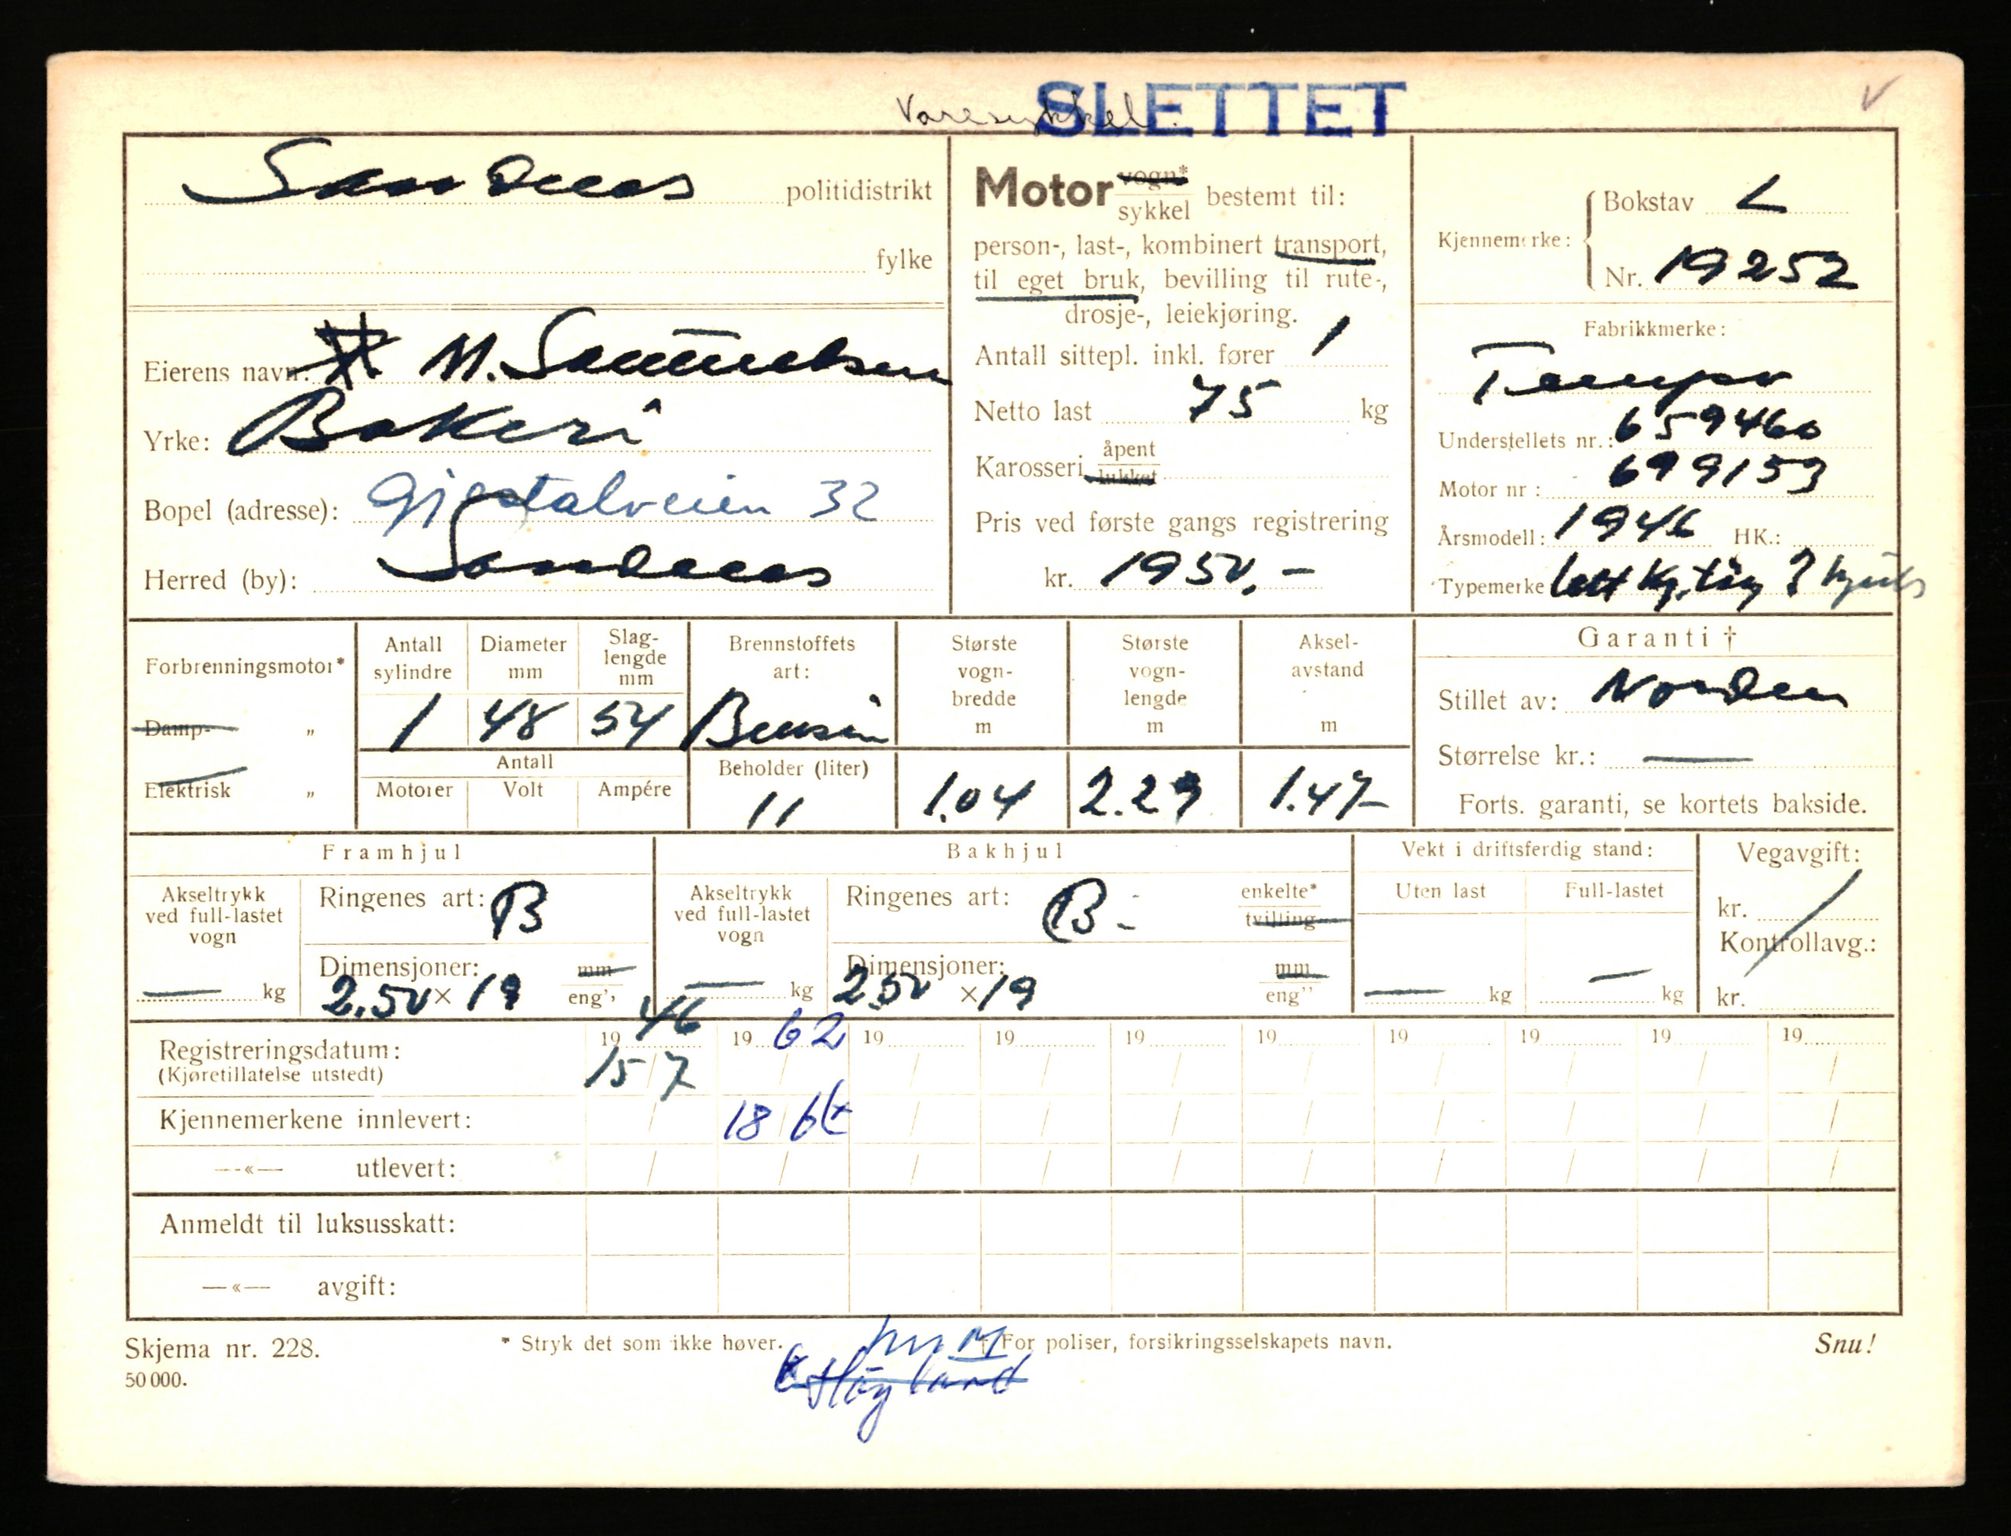 Varesykkel. SLETTET
Sandnes politidistrikt
fylke
Eierens navn: M. Samuelsen
Yrke: Bakeri
Bopel (adresse): Gjestalveien 32
Herred (by): Sandnes
Motor vogn* sykkel bestemt til:
person-, last-, kombinert transport,
til eget bruk, bevilling til rute-,
drosje-, leiekjøring.
Antall sittepl. inkl. fører 1
Netto last 75 kg
Karosseri åpent lukket
Pris ved første gangs registrering
kr. 1950,-
Kjennemerke: Bokstav L
Nr. 19252
Fabrikkmerke:
Tempo
Understellets nr.: 659460
Motor nr: 699153
Årsmodell: 1946 HK.:
Typemerke lett kj.tøy 3 hjuls
Forbrenningsmotor*
Damp- „
Elektrisk „
Antall sylindre 1
Diameter mm 48
Slag-lengde mm 54
Antall
Motorer Volt Ampére
Brennstoffets art: Bensin
Beholder (liter) 11
Største vogn-bredde m 1.04
Største vogn-lengde m 2.29
Aksel-avstand m 1.47
Garanti †
Stillet av: Norden
Størrelse kr.: —
Forts. garanti, se kortets bakside.
Framhjul
Akseltrykk ved full-lastet vogn — kg
Ringenes art: B
Dimensjoner: mm
2.50 × 19 eng"
Bakhjul
Akseltrykk ved full-lastet vogn — kg
Ringenes art: B - enkelte* tvilling
Dimensjoner: mm
2.50 × 19 eng"
Vekt i driftsferdig stand:
Uten last Full-lastet
— kg — kg
Vegavgift:
kr.
Kontrollavg.:
kr.
Registreringsdatum: 19 46 19 62 19 19 19 19 19 19 19 19
(Kjøretillatelse utstedt) 15/7
Kjennemerkene innlevert: 18/6
—«— utlevert:
Anmeldt til luksusskatt:
—«— avgift:
Skjema nr. 228. * Stryk det som ikke høver. † For poliser, forsikringsselskapets navn. Snu!
50 000. Høyland